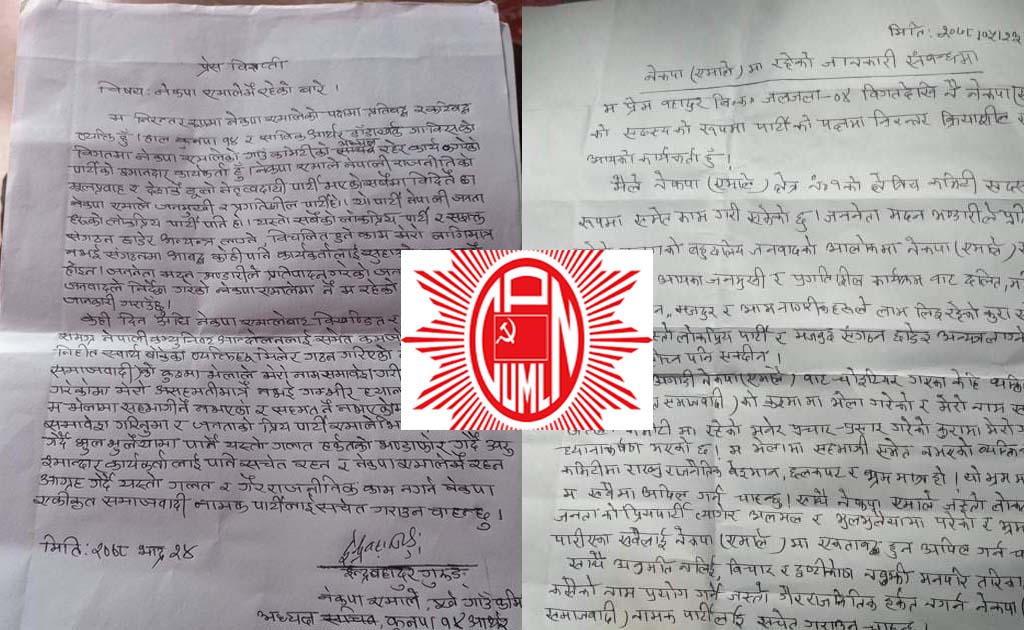 प्रेस विज्ञप्ती
विषय: नेकपा एमालेमै रहेको बारे ।
म निरन्तर रुपमा नेकपा एमालेको पक्षमा प्रतिबद्ध र
व्यक्ति हुँ । हाल कुनपा १४ र साविक आर्थर गाविसको
विगतमा नेकपा एमालेको गाउँ कमिटीको रहेर कार्य गरेको
पार्टीको इमानदार कार्यकर्ता हुँ । नेकपा एमाले नेपाली राजनीतिको
मूलप्रवाह र देशकै ठूलो पार्टी भएको सर्वमा विदितै छ ।
नेकपा एमाले जनमुखी र प्रगतिशील पार्टी हो । यो पार्टी नेपाली जनता
हरुको लोकप्रिय पार्टी पनि हो । यस्तो सबैको लोकप्रिय पार्टी र सशक्त
संगठन छाडेर अन्यत्र लाग्ने, विचलित हुने काम मेरो लागिमात्र
नभई संगठनमा आबद्ध कोही पनि कार्यकर्तालाई
होइन । जननेता मदन भण्डारीले प्रतिपादन गरेको जन
जनवादले निर्देश गरेको नेकपा एमालेमा नै म रहेको
जानकारी गराउँछु ।
केही दिन अघि नेकपा एमालेबाट विखण्डित र
समग्र नेपाली कम्युनिष्ट आन्दोलनलाई समेत कमजो
निहित स्वार्थ बोकेका व्यक्तिहरु मिलेर गठन गरिएको
समाजवादी) को कुश्मा भेलाले मेरो नाम समावेश गरी
गरेकोमा मेरो असहमतीमात्रै नभई गम्भीर ध्यान
म भेलामा सहभागीनै नभएको र सहमत नै नभएको
समावेश गरिनुमा र जनताको प्रिय पार्टी एमालेभि
गर्दै भुलभुलैयामा पार्ने यस्तो गलत हर्कतको भण्डाफोर गर्दै
इमान्दार कार्यकर्तालाई पनि सचेत रहन र नेकपा एमालेमै रहन
आग्रह गर्दै यस्तो गलत र गैर राजनीतिक काम नगर्न नेकपा
एकीकृत समाजवादी नामक पार्टीलाई सचेत गराउन चाहन्छु ।
मिति: २०७८ भाद्र २४
इन्द्रबहादुर गुरुङ
नेकपा एमाले, गाउँ कमि
अध्यक्ष कुनपा १४ आर्थर
CPN
UML
मिति: २०७८।०५।२५
नेकपा (एमाले) मा रहेको जानकारी संबन्धमा
म प्रेम बहादुर बि.क. जलजला-०४ विगतदेखि नै नेकपा (ए
को सदस्यको रुपमा पार्टीको पक्षमा निरन्तर क्रियाशील
आएको कार्यकर्ता हुँ ।
मैले नेकपा (एमाले) क्षेत्र नं. १ को क्षेत्रिय कमिटी सदस्य
रुपमा समेत काम गरी सकेको छु । जननेता मदन भण्डारीले प्रति
को बहुदलीय जनवादको आलोकमा नेकपा (एमाले)
आएका जनमुखी र प्रगतिशील कार्यक्रम बाट दलित,
मजदुर र आम नागरिकहरुले लाभ लिइ रहेको कुरा
लोकप्रिय पार्टी र मजबुद संगठन छोडेर अन्यत्र लाग्ने
पनि सक्दिन ।
अगाडी नेकपा (एमाले) बाट चोइटिएर गएका केहि व्यक्ति
समाजवादी) को कुश्मामा भेला गरेको र मेरो नाम स
कमिटी मा रहेको भनेर प्रचार-प्रसार गरेको कुरामा मेरो
ध्यानाकर्षण भएको छ । म भेलामा सहभागी समेत नभएको व्यक्ति
कमिटीमा राख्नु राजनैतिक बेइमान, छलकपट र भ्रम मात्र हो । यो भ्रम
म सबैमा अपिल गर्न चाहन्छु । साथै नेकपा एमाले जस्तो लोक
जनताको प्रिय पार्टी त्यागेर अलमल र भुलभुलैयामा परेका र भ्रम
पारीएका सबैलाई नेकपा (एमाले) मा एकताबद्ध हुन अपिल गर्न च
साथै अनुमति नलिई विचार र दृष्टीकोण नबुझी मनपरि तरिका
कसैको नाम प्रयोग गर्ने जस्तो गैरराजनैतिक हर्कत नगर्न नेकपा (
समाजवादी) नामक पार्टी लाई सचेत गराउन चाहन्छु ।